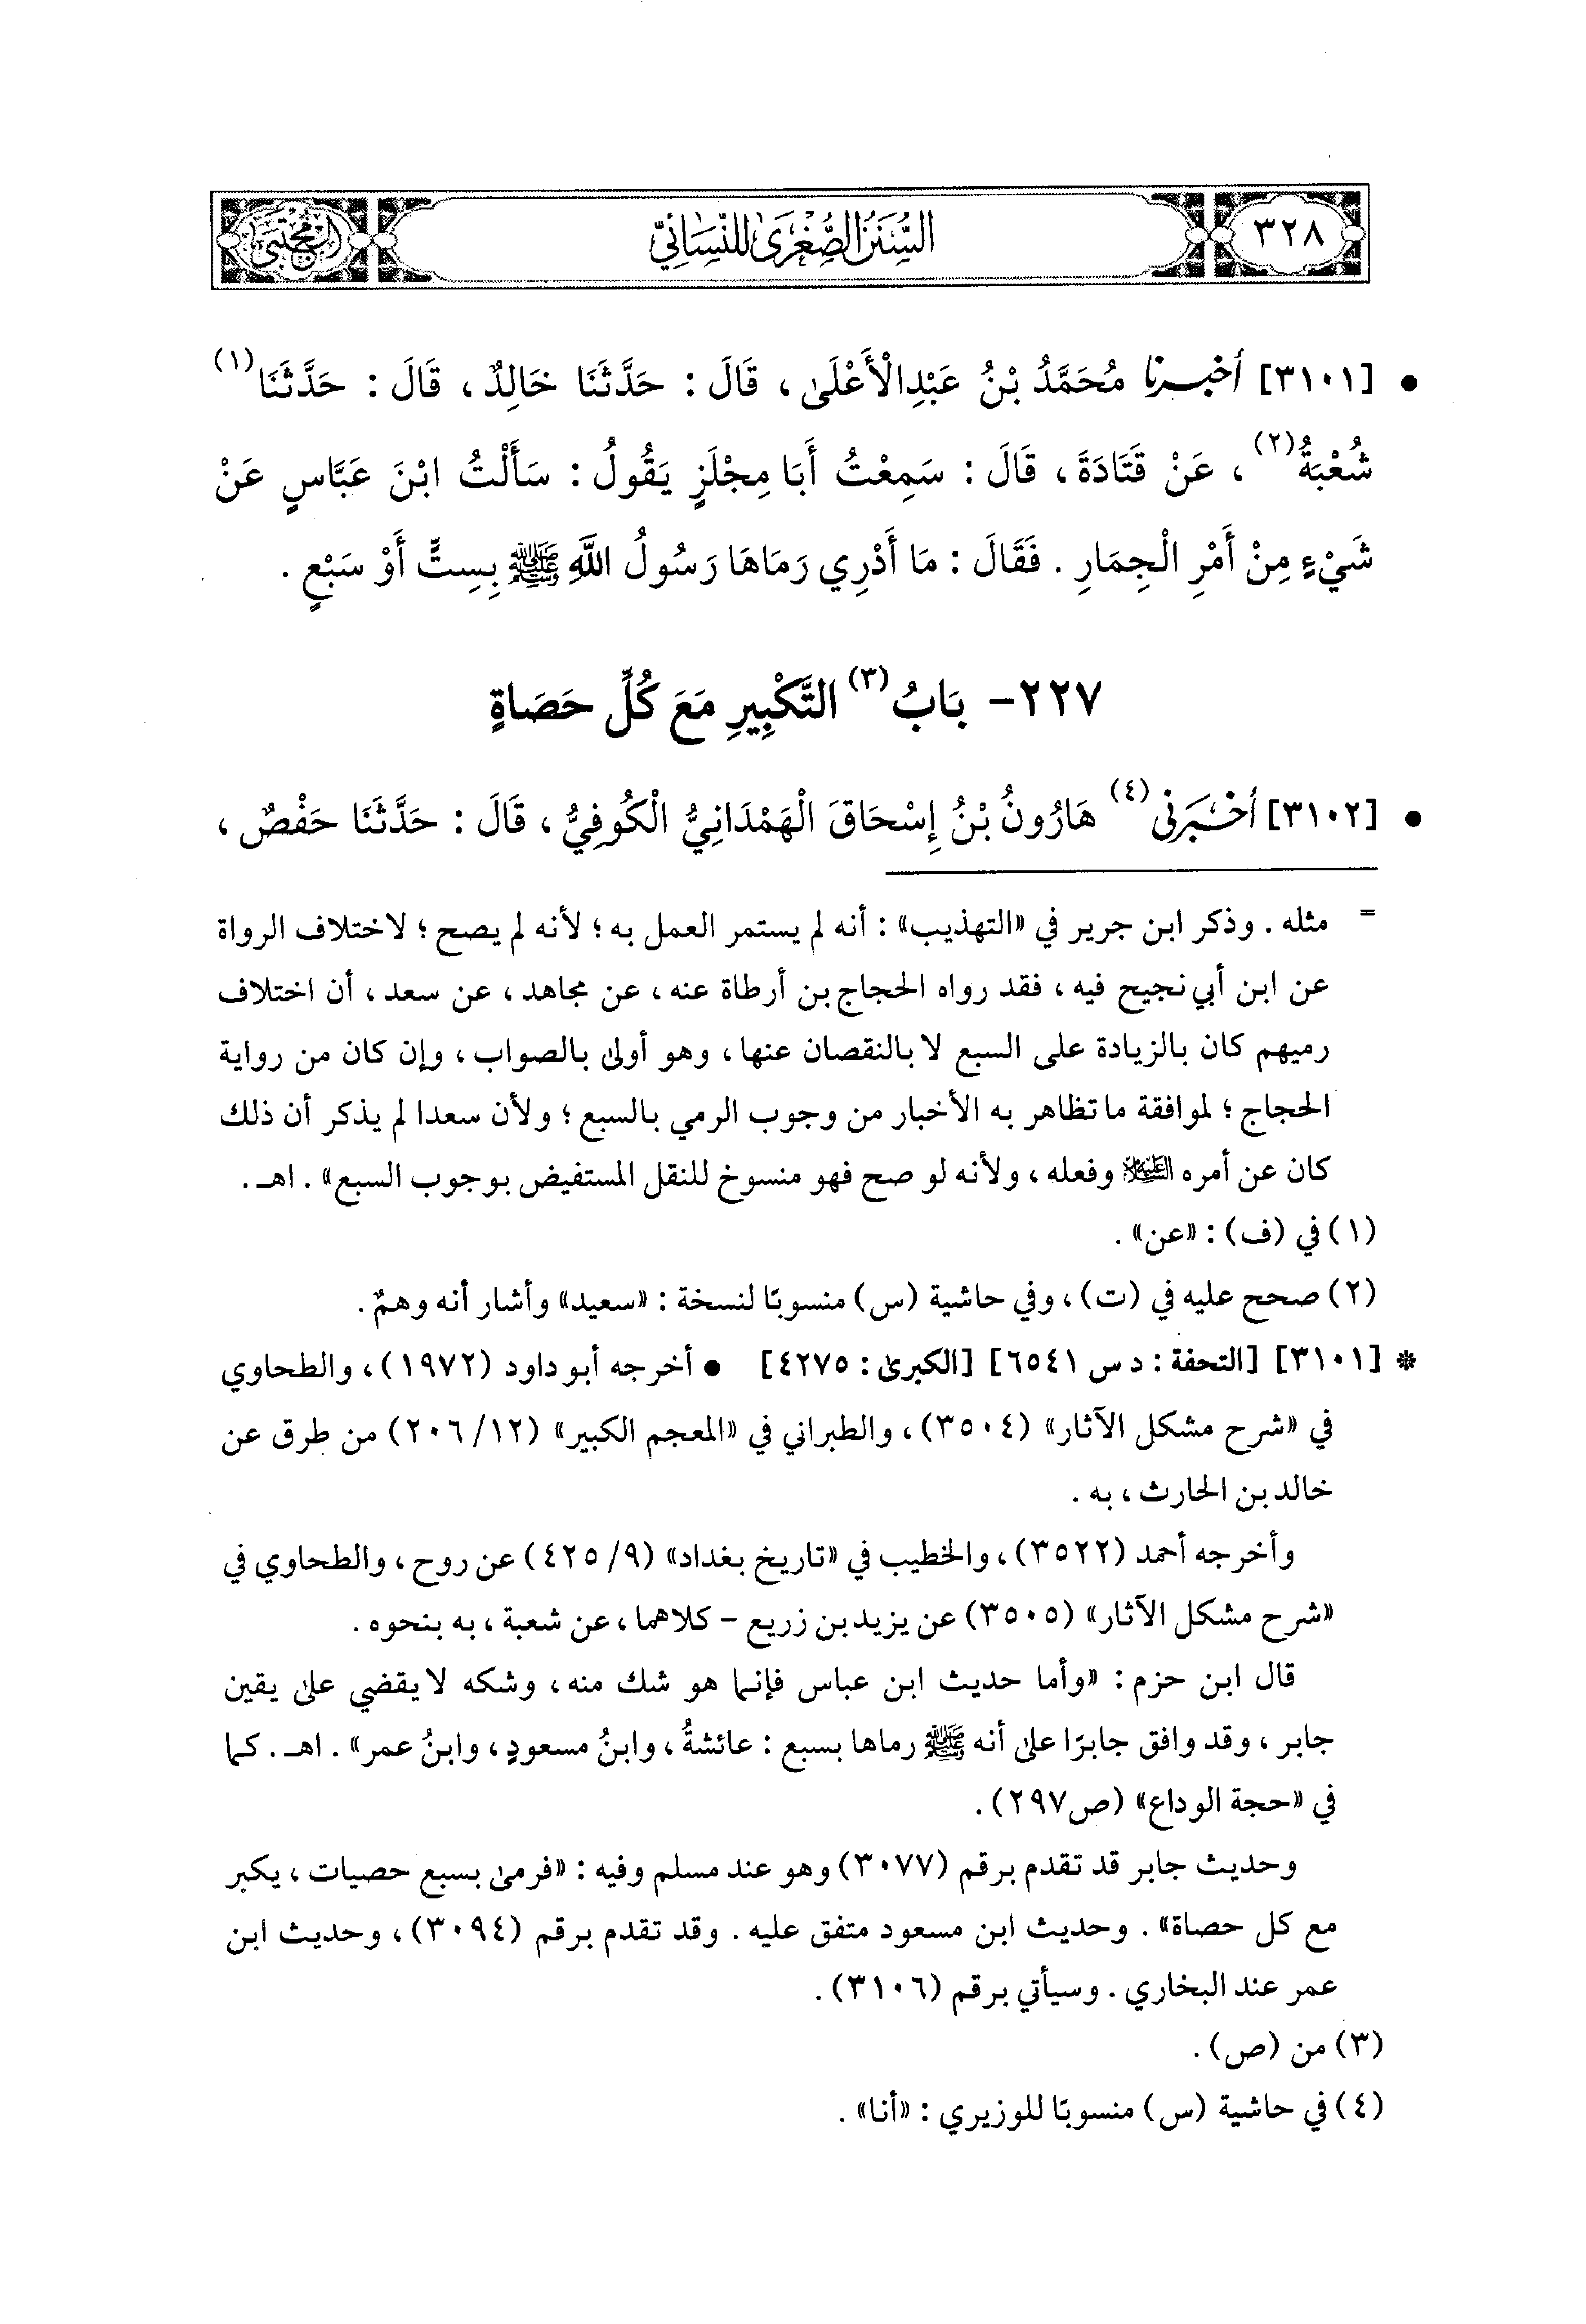 ٣٢٨
السُّنَنُ الصُّغْرَى لِلنَّسَائِيِّ
المجتبى
• [٣١٠١] أَخْبَرَنَا مُحَمَّدُ بْنُ عَبْدِالْأَعْلَى ، قَالَ : حَدَّثَنَا خَالِدٌ ، قَالَ : حَدَّثَنَا (١)
شُعْبَةُ (٢) ، عَنْ قَتَادَةَ ، قَالَ : سَمِعْتُ أَبَا مِجْلَزٍ يَقُولُ : سَأَلْتُ ابْنَ عَبَّاسٍ عَنْ
شَيْءٍ مِنْ أَمْرِ الْجِمَارِ . فَقَالَ : مَا أَدْرِي رَمَاهَا رَسُولُ اللَّهِ ﷺ بِسِتٍّ أَوْ سَبْعٍ .
٢٢٧- بَابُ (٣) التَّكْبِيرِ مَعَ كُلِّ حَصَاةٍ
• [٣١٠٢] أَخْبَرَنِي (٤) هَارُونُ بْنُ إِسْحَاقَ الْهَمْدَانِيُّ الْكُوفِيُّ ، قَالَ : حَدَّثَنَا حَفْصٌ ،
= مثله . وذكر ابن جرير في «التهذيب» : أنه لم يستمر العمل به ؛ لأنه لم يصح ؛ لاختلاف الرواة
عن ابن أبي نجيح فيه ، فقد رواه الحجاج بن أرطاة عنه ، عن مجاهد ، عن سعد ، أن اختلاف
رميهم كان بالزيادة على السبع لا بالنقصان عنها ، وهو أولى بالصواب ، وإن كان من رواية
الحجاج ؛ لموافقة ما تظاهر به الأخبار من وجوب الرمي بالسبع ؛ ولأن سعدا لم يذكر أن ذلك
كان عن أمره عليه السلام وفعله ، ولأنه لو صح فهو منسوخ للنقل المستفيض بوجوب السبع» . اهـ .
(١) في (ف) : «عن» .
(٢) صحح عليه في (ت) ، وفي حاشية (س) منسوبًا لنسخة : «سعيد» وأشار أنه وهمٌ .
* [٣١٠١] [التحفة : د س ٦٥٤١] [الكبرى : ٤٢٧٥] • أخرجه أبو داود (١٩٧٢) ، والطحاوي
في «شرح مشكل الآثار» (٣٥٠٤) ، والطبراني في «المعجم الكبير» (١٢/ ٢٠٦) من طرق عن
خالد بن الحارث ، به .
وأخرجه أحمد (٣٥٢٢) ، والخطيب في «تاريخ بغداد» (٩/ ٤٢٥) عن روح ، والطحاوي في
«شرح مشكل الآثار» (٣٥٠٥) عن يزيد بن زريع - كلاهما ، عن شعبة ، به بنحوه .
قال ابن حزم : «وأما حديث ابن عباس فإنما هو شك منه ، وشكه لا يقضي على يقين
جابر ، وقد وافق جابرًا على أنه ﷺ رماها بسبع : عائشةُ ، وابنُ مسعودٍ ، وابنُ عمر» . اهـ . كما
في «حجة الوداع» (ص٢٩٧) .
وحديث جابر قد تقدم برقم (٣٠٧٧) وهو عند مسلم وفيه : «فرمى بسبع حصيات ، يكبر
مع كل حصاة» . وحديث ابن مسعود متفق عليه . وقد تقدم برقم (٣٠٩٤) ، وحديث ابن
عمر عند البخاري . وسيأتي برقم (٣١٠٦) .
(٣) من (ص) .
(٤) في حاشية (س) منسوبًا للوزيري : «أنا» .